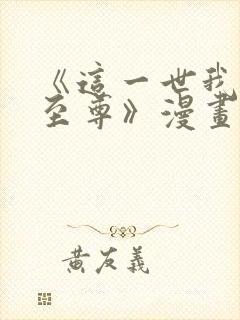 《這一世我
至尊》漫畫
黃友義